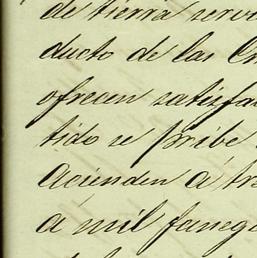 de tierra servi
ducto de las Cr
ofrecen satisfa
tido se pribe
Acienden á tre
á mil fanega